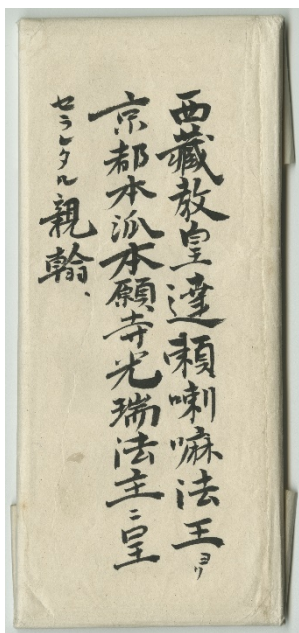 西藏教皇達頼喇嘛法王ヨリ
京都本派本願寺光瑞法主ニ呈
セラレタル親翰、